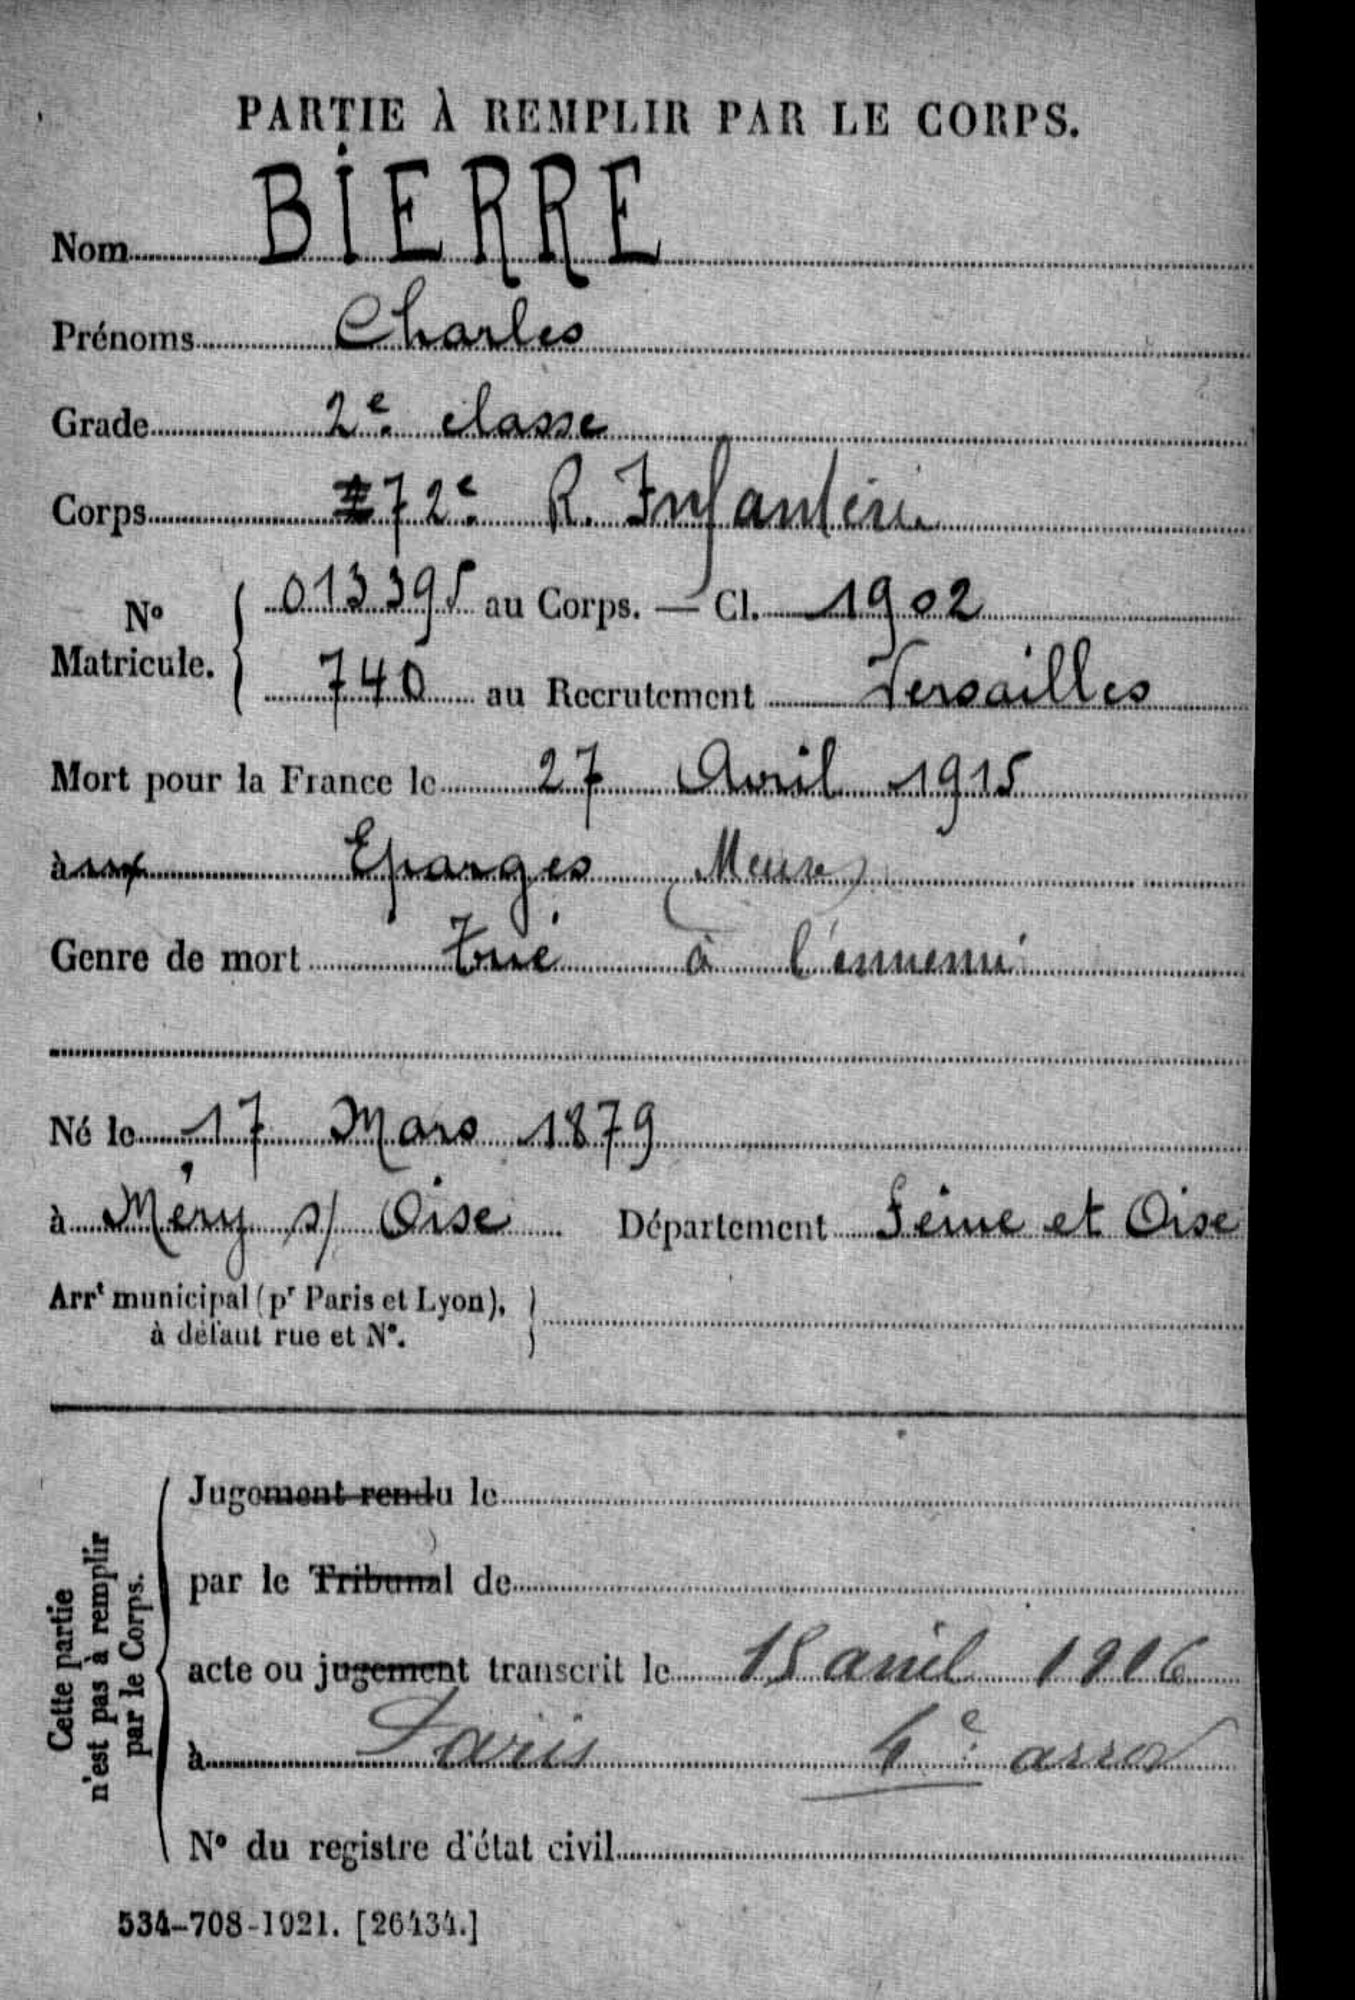 PARTIE À REMPLIR PAR LE CORPS.
Nom BIERRE
Prénoms Charles
Grade 2e classe
Corps 72e R. Infanterie
No Matricule. 013395 au Corps. — Cl. 1902
740 au Recrutement Versailles
Mort pour la France le 27 Avril 1915
à aux Eparges (Meuse)
Genre de mort tué à l'ennemi
Né le 17 Mars 1879
à Méry s/ Oise Département Seine et Oise
Arrt municipal (pr Paris et Lyon),
à défaut rue et No.
Cette partie
n'est pas à remplir
par le Corps.
Jugement rendu le
par le Tribunal de
acte ou jugement transcrit le avril 1916
à Paris 4e arrot
No du registre d'état civil
534-708-1921. [26434.]